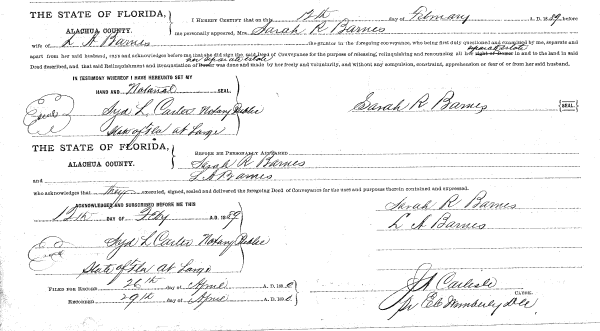 THE STATE OF FLORIDA,
ALACHUA COUNTY.
I HEREBY CERTIFY that on this 12th day of February A. D. 1889, before
me personally appeared, Mrs. Sarah R Barnes
wife of L A Barnes the grantor in the foregoing conveyance, who being first duly questioned and examined by me, separate and
apart from her said husband, says and acknowledges before me that she did sign the said Deed of Conveyance for the purpose of releasing, relinquishing and renouncing all her right of Dower in and to the land in said
separate estate
Deed described, and that said Relinquishment and renunciation of Dower was done and made by her freely and voluntarily, and without any compulsion, constraint, apprehension or fear of or from her said husband.
separate estate
IN TESTIMONY WHEREOF I HAVE HEREUNTO SET MY
HAND AND Notarial SEAL,
Syd L. Carter Notary Public
State of Fla at Large
Seal
Sarah R Barnes SEAL
THE STATE OF FLORIDA,
ALACHUA COUNTY.
BEFORE ME PERSONALLY APPEARED
Sarah R Barnes
and L A Barnes
who acknowledges that they executed, signed, sealed and delivered the foregoing Deed of Conveyance for the uses and purposes therein contained and expressed.
ACKNOWLEDGED AND SUBSCRIBED BEFORE ME THIS
12th DAY OF Feby A. D. 1889
Sarah R Barnes
L A Barnes
Syd L Carter Notary Public
State of Fla at Large
Seal
FILED FOR RECORD 26th day of April A. D. 18
RECORDED 29th day of April A. D. 18
J A Carlisle
CLERK.